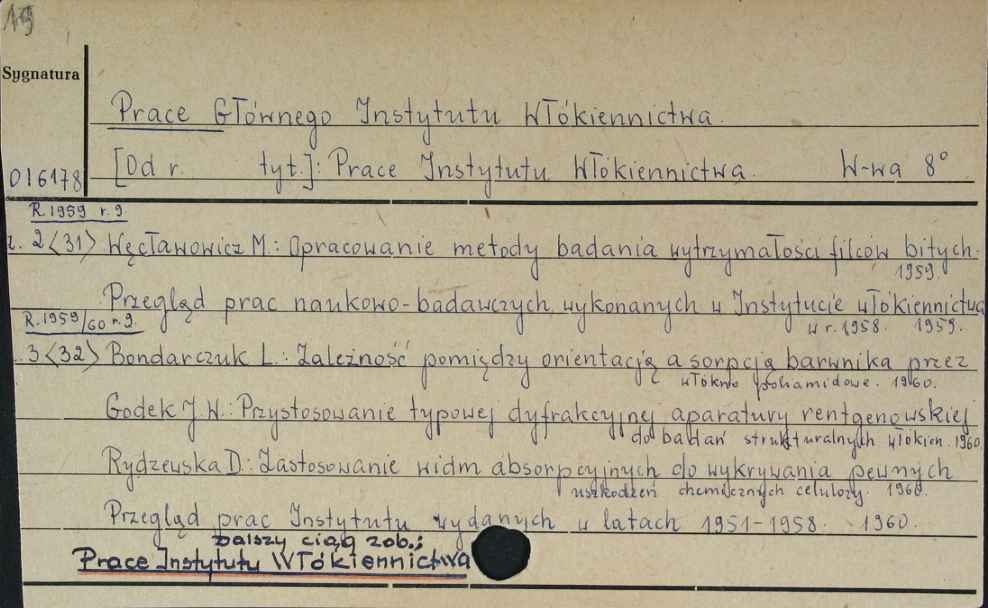 19
Sygnatura
Prace Głównego Instytutu Włókiennictwa.
016178 [Od r. tyt.]: Prace Instytutu Włókiennictwa. W-wa 8°
R. 1959 r. 9
z. 2 <31> Węcławowicz M.: Opracowanie metody badania wytrzymałości filców bitych.
1959.
Przegląd prac naukowo-badawczych wykonanych w Instytucie włókiennictwa
R. 1959/60 r. 9.
w r. 1958. 1959.
3 <32> Bondarczuk L.: Zależność pomiędzy orientacją a sorpcją barwnika przez
włókno poliamidowe. 1960.
Godek J. W.: Przystosowanie typowej dyfrakcyjnej aparatury rentgenowskiej
do badań strukturalnych włókien. 1960
Rydzewska D.: Zastosowanie widm absorpcyjnych do wykrywania pewnych
uszkodzeń chemicznych celulozy. 1960.
Przegląd prac Instytutu wydanych w latach 1951-1958. 1960.
Dalszy ciąg zob.:
Prace Instytutu Włókiennictwa